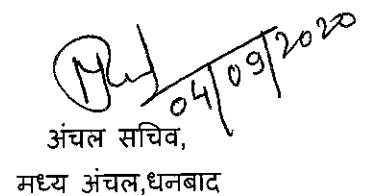 04/09/2020
अंचल सचिव,
मध्य अंचल,धनबाद